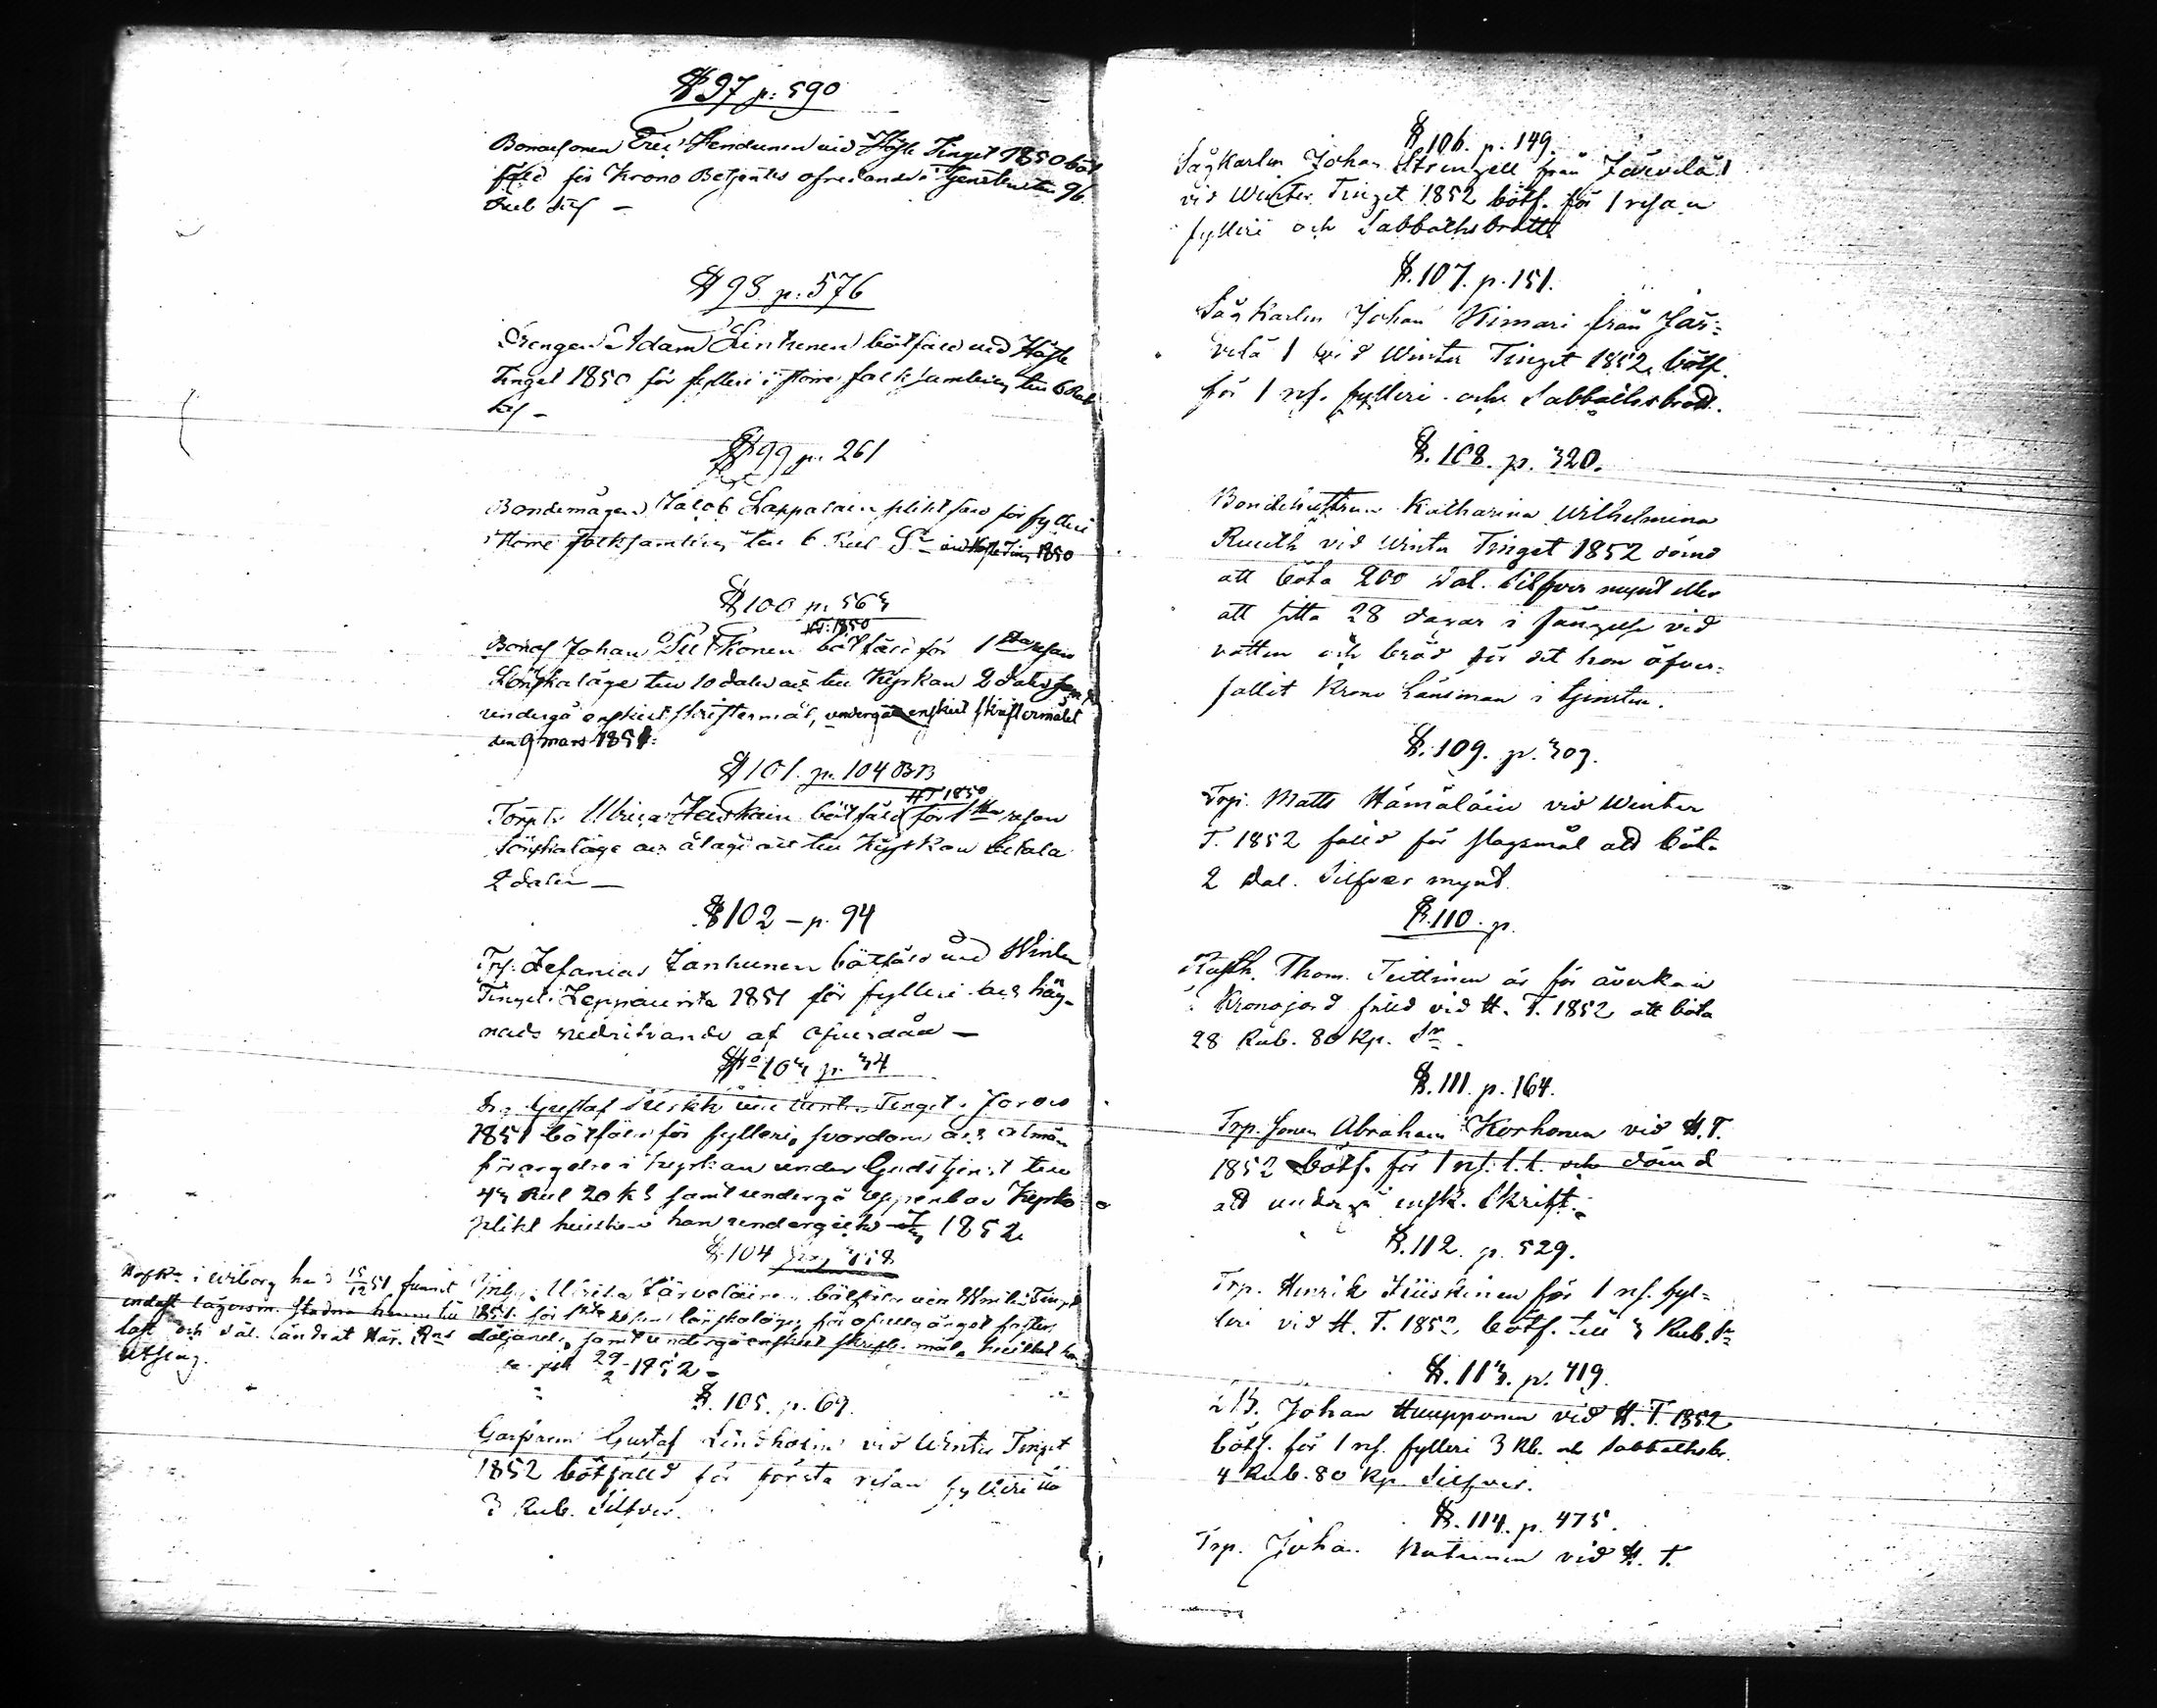 § 97 p: 590
Bondsonen Eric Hendunen vid Höste Tinget 1850 böt
fäld för Krono Betjentes ofredande i tjensten till 96.
Rub Silf -
§ 98 p: 576
Drengen Adam Lintunen bötfäld vid Höste
Tinget 1850 för fylleri i större folksamling till 6 Rub
Silf -
§ 99 p. 261
Bondemågen Jacob Lappalain pliktfäld för fylleri
i större folksamling till 6 Rub Sr vid Höste Ting 1850
§ 100 p. 563
HT: 1850
Bonds. Johan bötfäld för 1sta resan
Lönskaläge till 10 daler och till Kyrkan 2 daler samt
undergå enskilt skriftermål, undergått enskilt skriftermålet
den 9 mars 1851.
§ 101. p. 104 BB
HT 1850
Torp. Ulrica bötfäld för 1sta resan
Lönskaläge och ålagd att till Kyrkan betala
2 daler —
§ 102 - p. 94
Trp. Zefanias Janhunen bötfäld vid Winter
Tinget i Leppävirta 1851 för fylleri och häg-
nads nedrifvande af ofverdåd —
§ 103 p. 34
Gustaf vid Winter Tinget i Jorois
1851 bötfäld för fylleri, svordom och allmän
förargelse i kyrkan under Gudstjenst till
43 Rub 20 k S samt undergå uppenbar Kyrko
plikt hvilken han undergick 1852.
§ 104 pag 318
Hofrn i Wiborg har 15/12 51 funnit
endast lägersm. Stadna henne till
last och Säl. Ländrat Här. Rns
Utslag.
Ulrika Järveläinen bötfäld vid Winter Tinget
1851. för 1sta resan lönskaläge, för ofullgånget fosters
döljande, samt undergå enskilt skrifte-mål, hvilket
29/2 1852 -
§. 105. p. 69.
Garfvaren Gustaf Lindholm vid Winter Tinget
1852 bötfälld för första resan fylleri till
3 Rub. Silfver.
§ 106. p. 149.
Sågkarlen Johan Strengell från Järvelä 1
vid Winter Tinget 1852 bötf. för 1 resan
fylleri och Sabbathsbrott
§. 107. p. 151.
Sågkarlen Johan Kimari från Jär-
velä 1 vid Winter Tinget 1852, bötf.
för 1 res. fylleri och Sabbathsbrott.
§. 108. p. 320.
Bondehustrun Katharina Wilhelmina
Ruuth vid Winter Tinget 1852 dömd
att böta 200 Dal. Silfver mynt eller
att sitta 28 dagar i fängelse vid
vatten och bröd för det hon öfver-
fallit Krono Länsman i tjensten.
§. 109. p. 303.
Trp. Matts Hämäläin vid Winter
T. 1852 fälld för slagsmål att böta
2 Dal. Silfver mynt.
§. 110. p.
Rusth. Thom. Teittinen är för åverkan
å Kronojord fälld vid H. T. 1852 att böta
28 Rub. 80 Kp. Sr.
§. 111. p. 164.
Trp. sonen Abraham Korhonen vid H. T.
1852 bötf. för 1 res. l. l. och dömd
att undergå ensk. Skrift.
§. 112. p. 529.
Trp. Henrik Jääskinen för 1 res. fyl-
leri vid H. T. 1852 bötf. till 3 Rub. Sr
§. 113. p. 419.
Johan Huupponen vid H. T. 1852
bötf. för 1 res. fylleri 3 Rb. och Sabbathsbr.
4 Rub. 80 Kp. Silfver.
§. 114. p. 475.
Trp. Johan Natunen vid H. T.